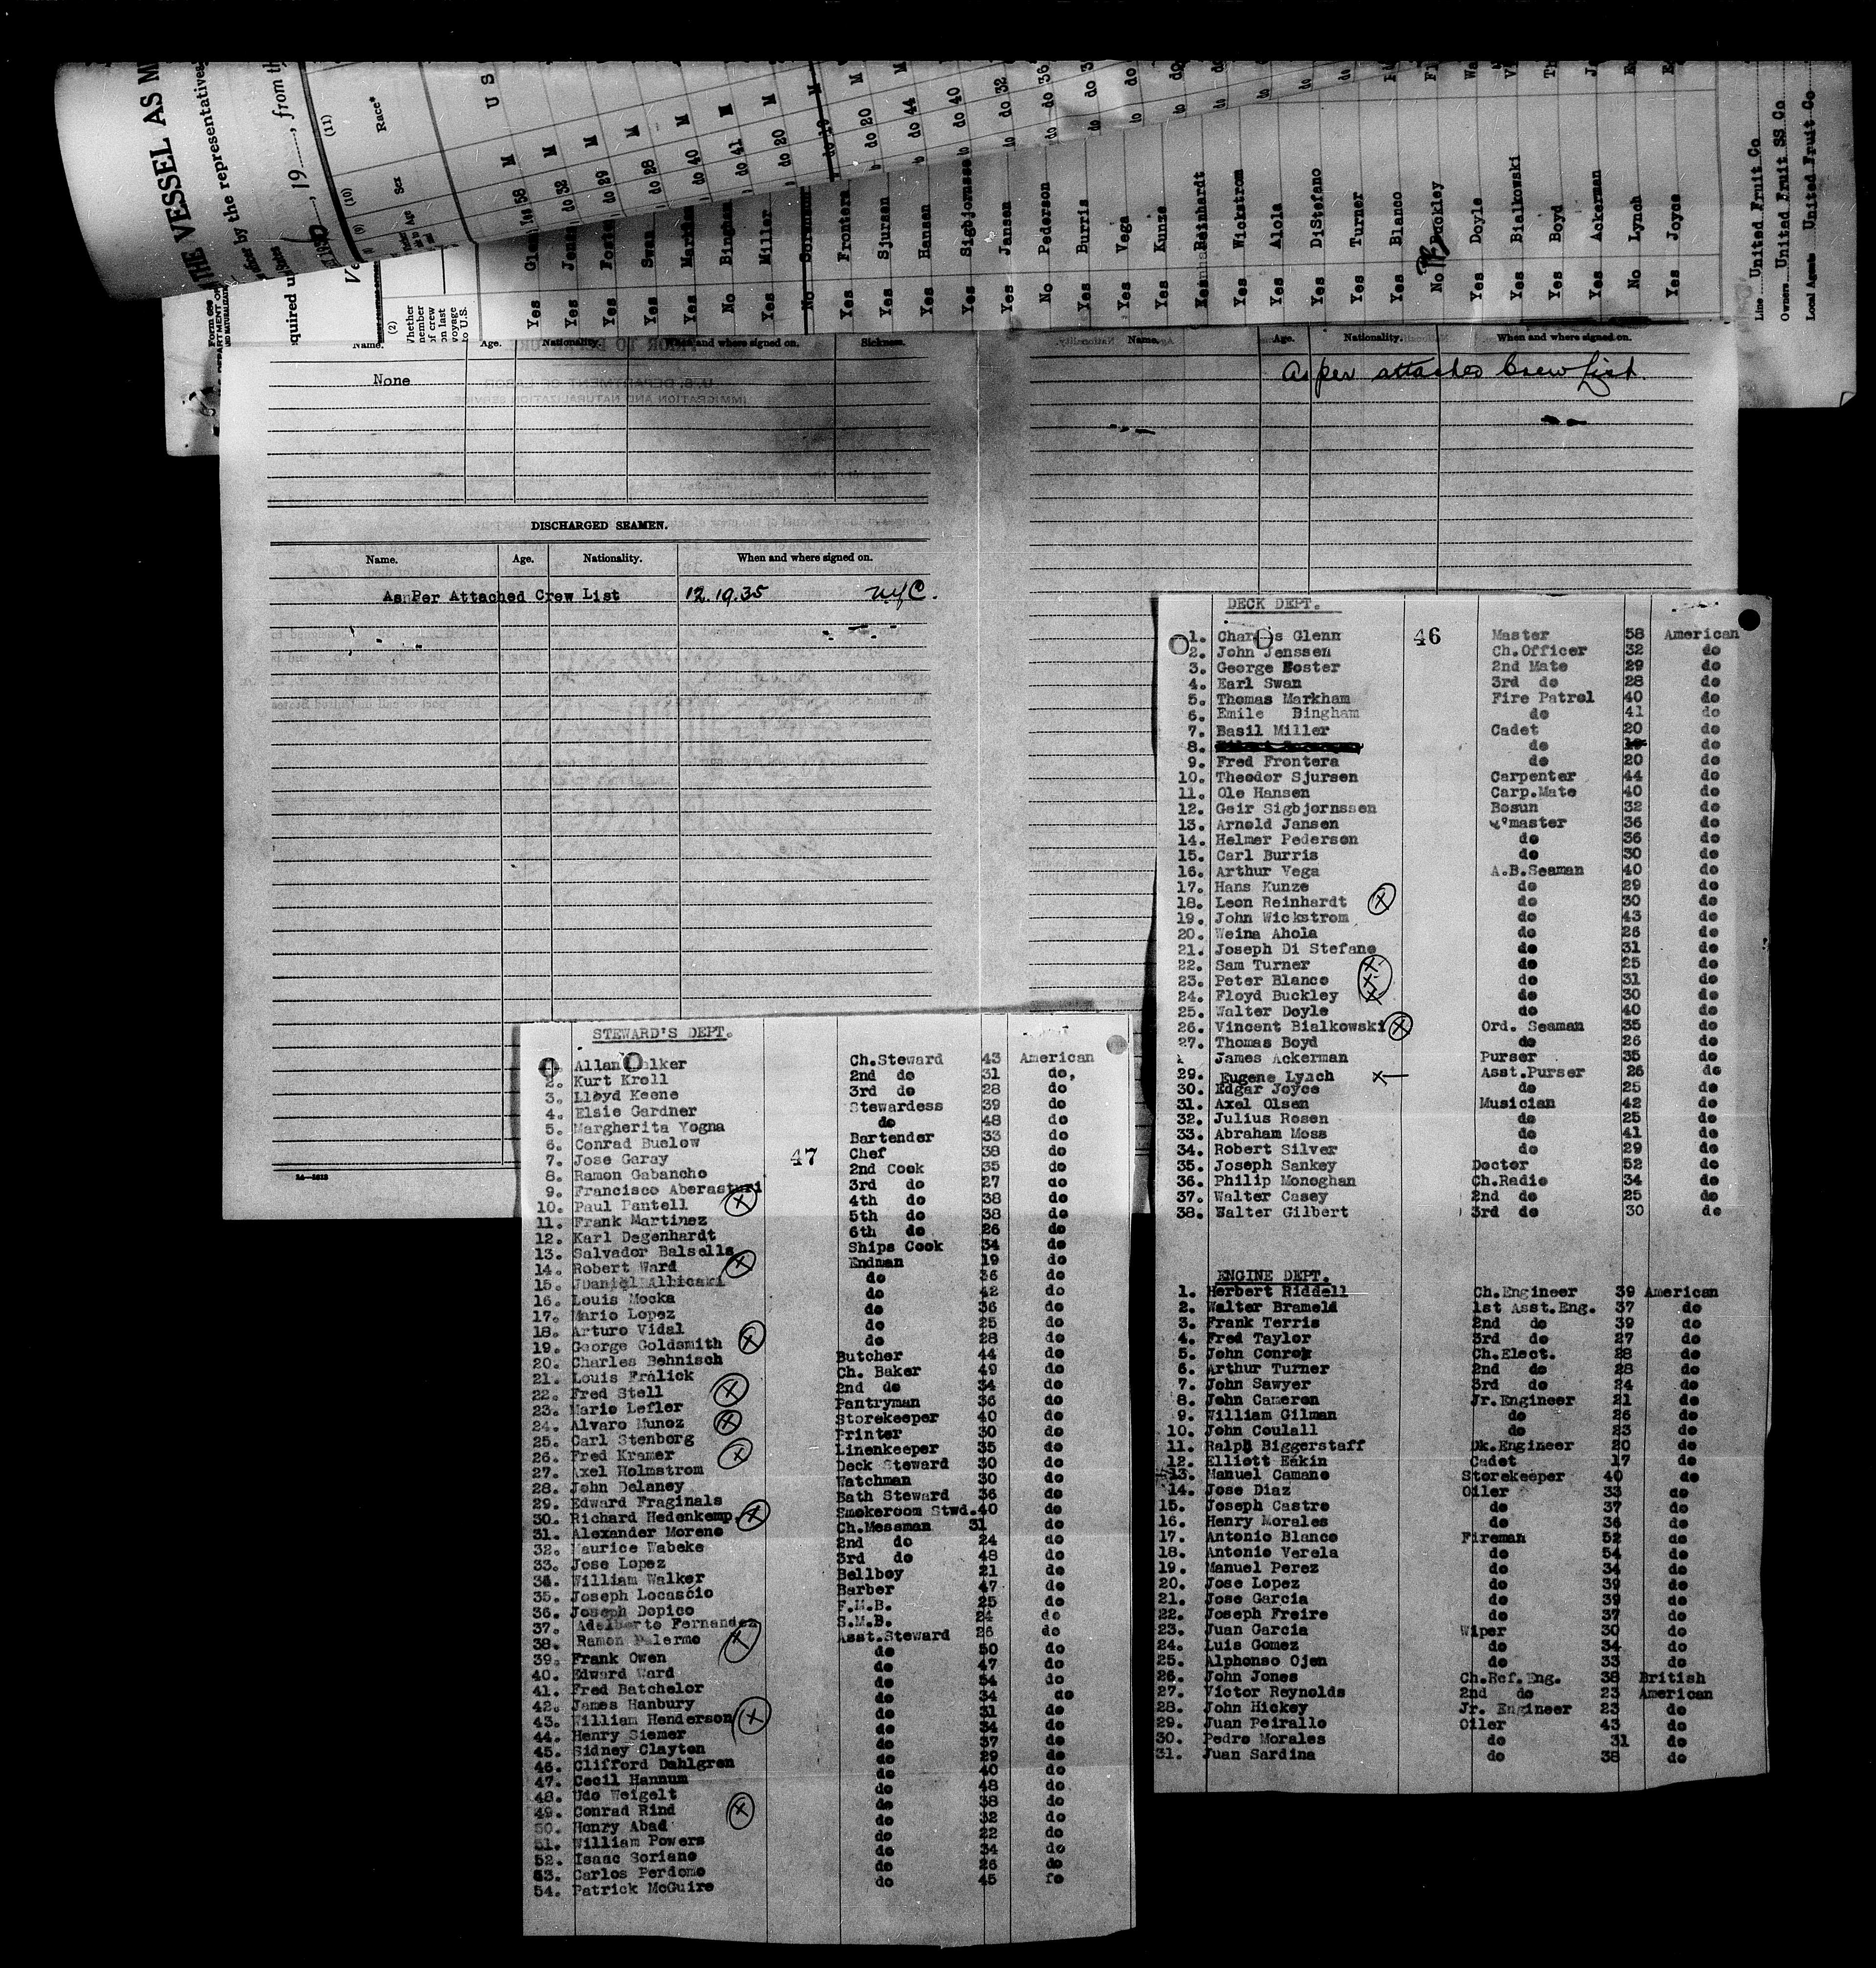 THE VESSEL AS M
officer by the representatives
equired u
19
, from th
Form 689
(9)
(10)
(11)
Sex
Race*
(2)
Whether member of crew on last voyage to U.S.
U S
Yes Glen Yes 58 M
Yes Jensen do 32 M
Yes Foste do 29 M
Yes Swan do 28 M
Yes Mar do 40 M
No Bingham do 41 M
Yes Miller do 20 M
No do 19 M
Yes Frontera do 20 M
Yes Sjursen do 44 M
Yes Hansen do 40
Yes Sigbjornsse do 32
Yes Jansen do 36
No Pederson do 3
Yes Burris do
Yes Vega do
Yes Kunze
Reinhardt
Yes Wickstrom
Yes Alola
Yes DiStefano
Yes Turner
Yes Blanco
No Buckley
Yes Doyle
Yes Bialkowski
Yes Boyd
Yes Ackerman
No Lynch
Yes Joyce
Line United Fruit Co
Owners United Fruit SS Co
Local Agents United Fruit Co
Name. Age. Nationality. When and where signed on. Sickness.
None
Name. Age. Nationality. When and where signed on.
As per attached Crew List.
DISCHARGED SEAMEN.
Name. Age. Nationality. When and where signed on.
As Per Attached Crew List 12.19.35 NYC.
14—1613
DECK DEPT.
46
1. Charles Glenn Master 58 American
2. John Jenssen Ch.Officer 32 do
3. George Foster 2nd Mate 29 do
4. Earl Swan 3rd do 28 do
5. Thomas Markham Fire Patrol 40 do
6. Emile Bingham do 41 do
7. Basil Miller Cadet 20 do
8. do 19 do
9. Fred Frontera do 20 do
10. Theodor Sjursen Carpenter 44 do
11. Ole Hansen Carp.Mate 40 do
12. Geir Sigbjornssen Bosun 32 do
13. Arnold Jansen Q'master 36 do
14. Helmer Pederson do 36 do
15. Carl Burris do 30 do
16. Arthur Vega A.B.Seaman 40 do
17. Hans Kunze do 29 do
18. Leon Reinhardt X do 30 do
19. John Wickstrom do 43 do
20. Weina Ahola do 26 do
21. Joseph Di Stefano do 31 do
22. Sam Turner X do 25 do
23. Peter Blanco X do 31 do
24. Floyd Buckley X do 30 do
25. Walter Doyle do 40 do
26. Vincent Bialkowski X Ord. Seaman 35 do
27. Thomas Boyd do 26 do
James Ackerman Purser 35 do
29. Eugene Lynch X Asst.Purser 26 do
30. Edgar Joyce do 25 do
31. Axel Olsen Musician 42 do
32. Julius Rosen do 25 do
33. Abraham Moss do 41 do
34. Robert Silver do 29 do
35. Joseph Sankey Doctor 52 do
36. Philip Monoghan Ch.Radio 34 do
37. Walter Casey 2nd do 25 do
38. Walter Gilbert 3rd do 30 do
ENGINE DEPT.
1. Herbert Riddell Ch.Engineer 39 American
2. Walter Brameld 1st Asst.Eng. 37 do
3. Frank Terris 2nd do 39 do
4. Fred Taylor 3rd do 27 do
5. John Conrok Ch.Elect. 28 do
6. Arthur Turner 2nd do 28 do
7. John Sawyer 3rd do 24 do
8. John Cameron Jr.Engineer 21 do
9. William Gilman do 26 do
10. John Coulall do 23 do
11. Ralph Biggerstaff Dk.Engineer 20 do
12. Elliott Eakin Cadet 17 do
13. Manuel Camano Storekeeper 40 do
14. Jose Diaz Oiler 33 do
15. Joseph Castro do 37 do
16. Henry Morales do 36 do
17. Antonio Blanco Fireman 52 do
18. Antonio Verela do 54 do
19. Manuel Perez do 34 do
20. Jose Lopez do 39 do
21. Jose Garcia do 39 do
22. Joseph Freire do 37 do
23. Juan Garcia Wiper 30 do
24. Luis Gomez do 34 do
25. Alphonso Ojen do 33 do
26. John Jones Ch.Ref.Eng. 38 British
27. Victor Reynolds 2nd do 23 American
28. John Hickey Jr. Engineer 23 do
29. Juan Peirallo Oiler 43 do
30. Pedro Morales do 31 do
31. Juan Sardina do 38 do
STEWARD'S DEPT.
47
1. Allan Walker Ch.Steward 43 American
2. Kurt Kroll 2nd do 31 do,
3. Lloyd Keene 3rd do 28 do
4. Elsie Gardner Stewardess 39 do
5. Margherita Yogna do 48 do
6. Conrad Buelow Bartender 33 do
7. Jose Garay Chef 38 do
8. Ramon Gabancho 2nd Cook 35 do
9. Francisco Aberasturi 3rd do 27 do
10. Paul Pantell X 4th do 38 do
11. Frank Martinez 5th do 38 do
12. Karl Degenhardt 6th do 26 do
13. Salvador Balsells Ships Cook 34 do
14. Robert Ward X Endman 19 do
15. Daniel Albicaki do 36 do
16. Louis Mocka do 42 do
17. Mario Lopez do 36 do
18. Arturo Vidal do 25 do
19. George Goldsmith X do 28 do
20. Charles Behnisch Butcher 44 do
21. Louis Fralick Ch. Baker 49 do
22. Fred Stell X 2nd do 34 do
23. Mario Lefler Pantryman 36 do
24. Alvaro Munoz X Storekeeper 40 do
25. Carl Stenborg Printer 30 do
26. Fred Kramer X Linenkeeper 35 do
27. Axel Holmstrom Deck Steward 30 do
28. John Delaney Watchman 30 do
29. Edward Fraginals Bath Steward 36 do
30. Richard Hedenkemp. X Smokeroom Stwd. 40 do
31. Alexander Moreno Ch.Messman 31 do
32. Maurice Wabeke 2nd do 24 do
33. Jose Lopez 3rd do 48 do
34. William Walker Bellboy 21 do
35. Joseph Locascio Barber 47 do
36. Joseph Dopico F.M.B. 25 do
37. Adelberto Fernandez S.M.B. 24 do
38. Ramon Palermo X Asst.Steward 26 do
39. Frank Owen do 50 do
40. Edward Ward do 47 do
41. Fred Batchelor do 54 do
42. James Hanbury do 34 do
43. William Henderson X do 31 do
44. Henry Siemer do 34 do
45. Sidney Clayton do 37 do
46. Clifford Dahlgren do 29 do
47. Cecil Hannum do 40 do
48. Udo Weigelt do 48 do
49. Conrad Rind X do 38 do
50. Henry Abad do 32 do
51. William Powers do 22 do
52. Isaac Soriano do 34 do
53. Carlos Perdomo do 26 do
54. Patrick McGuire do 45 fo